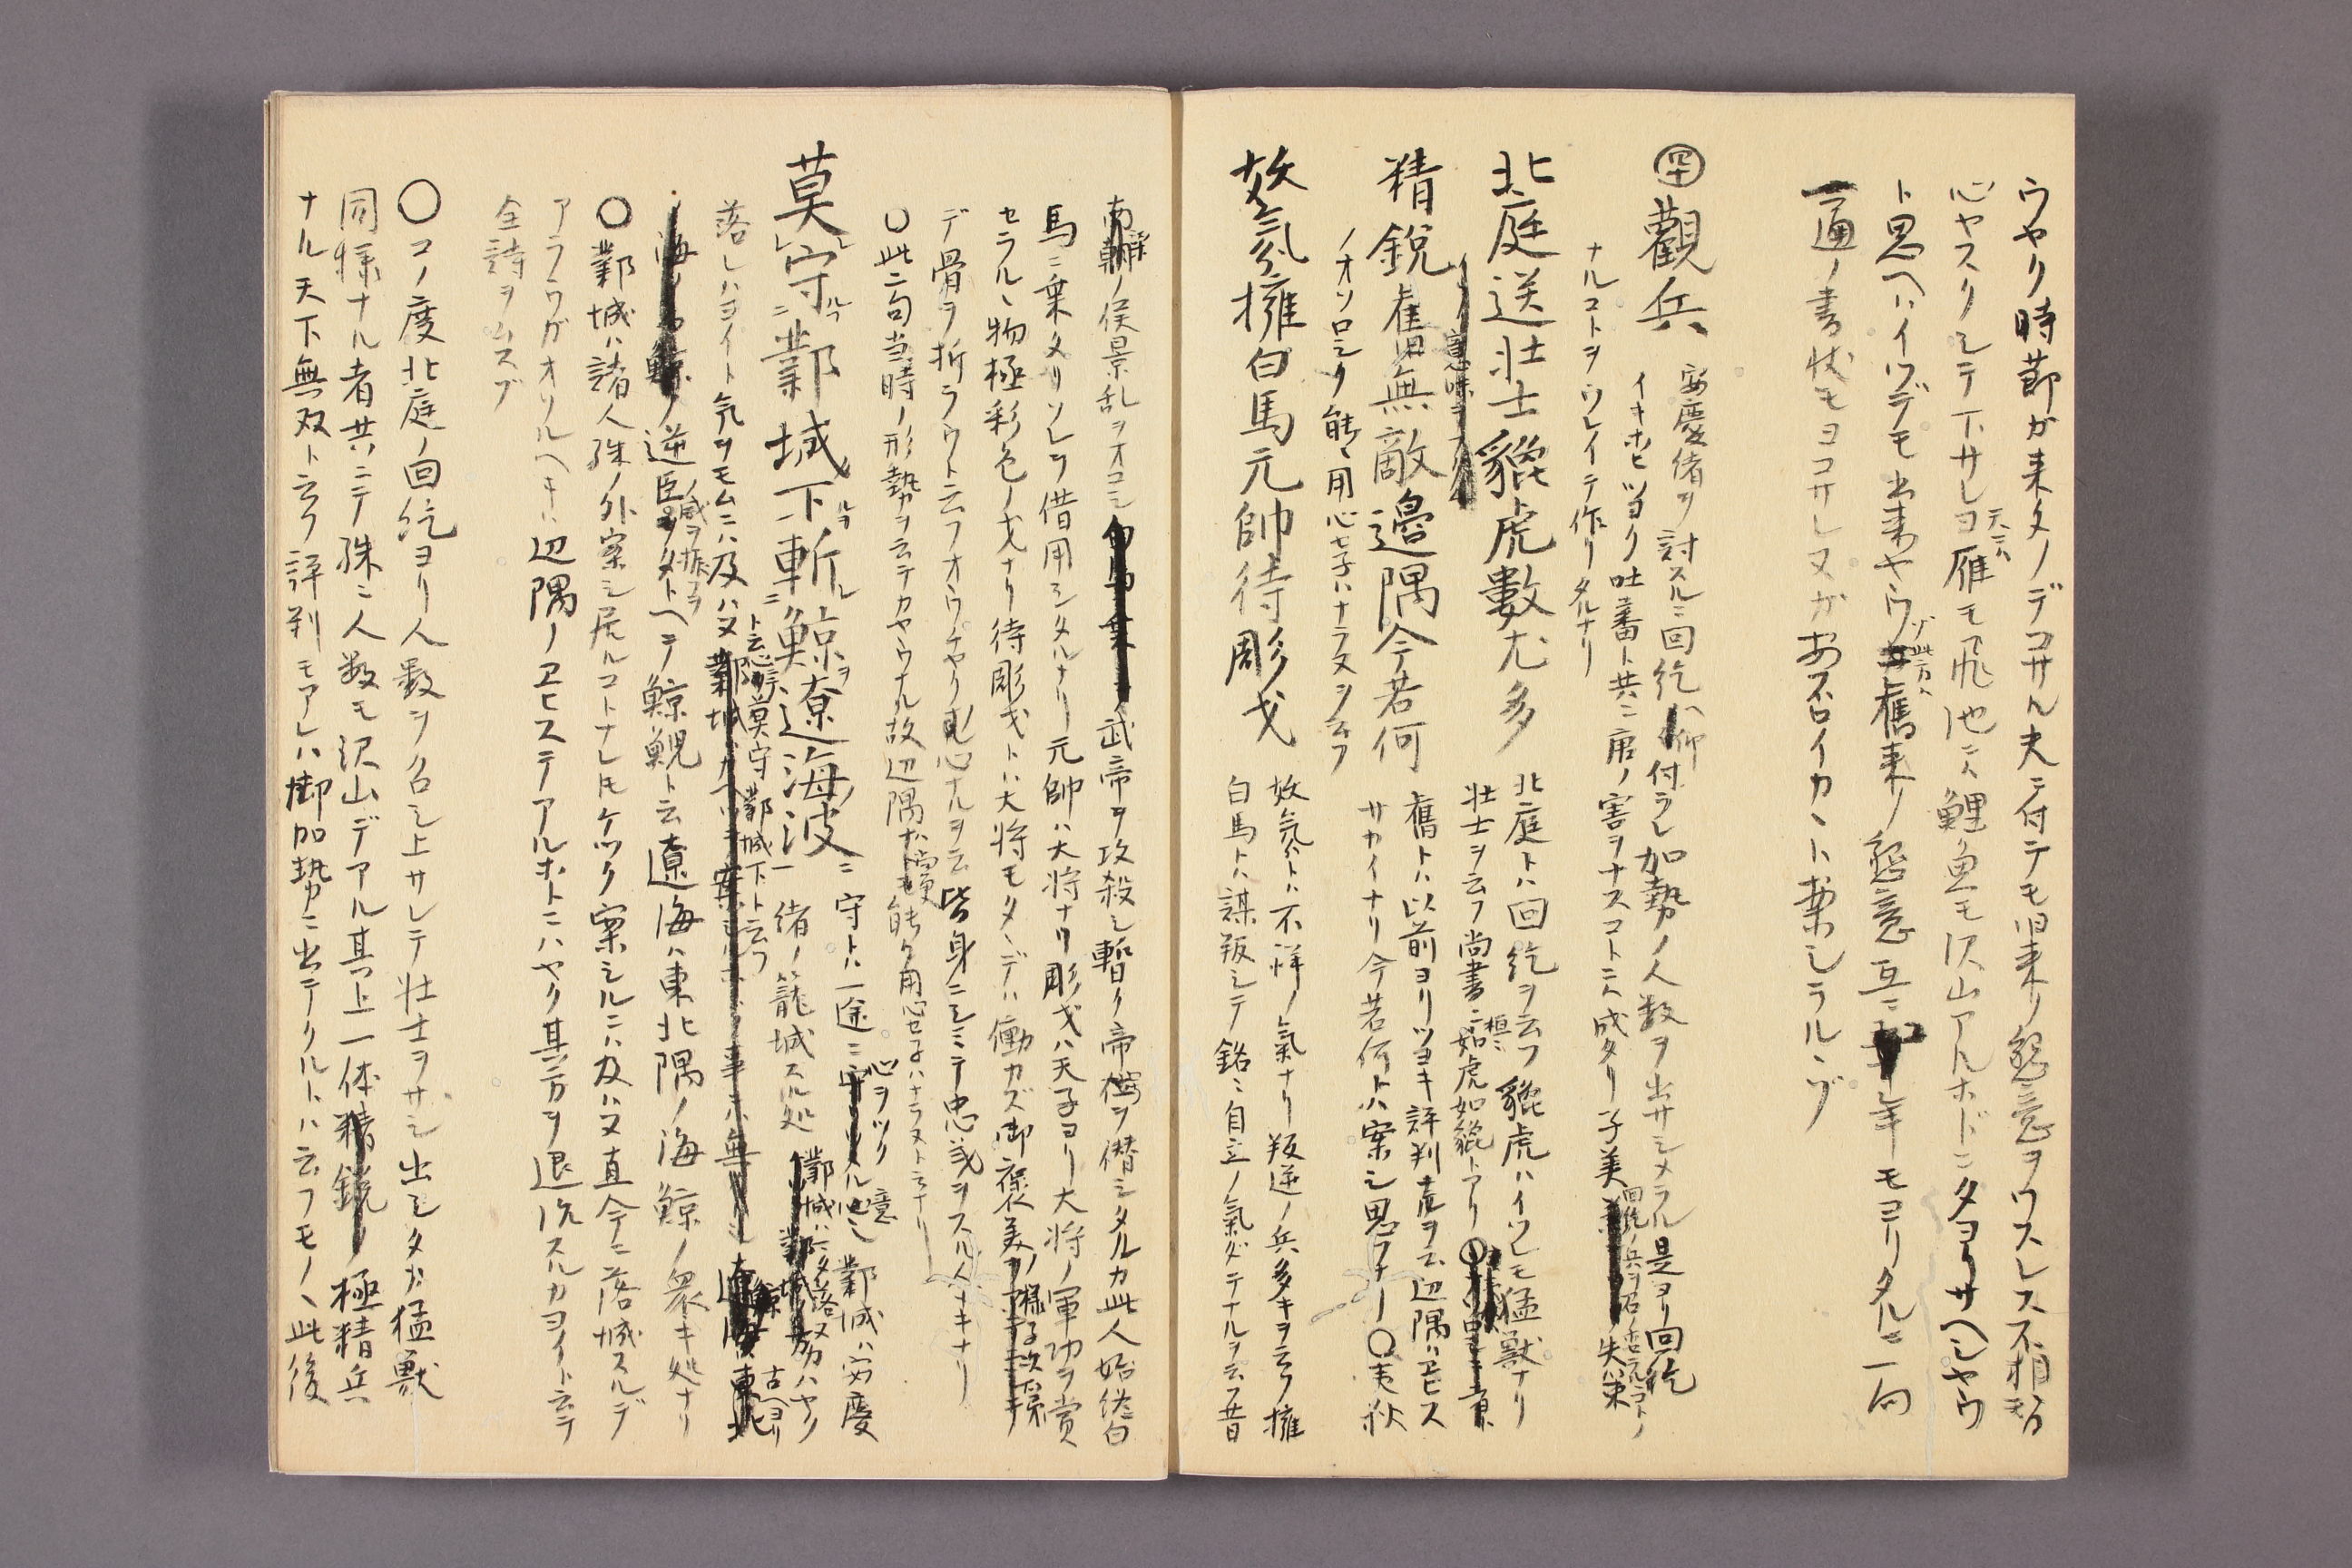 ウヤク時節ガ来タノデゴサル夫ニ付テモ旧来ノ懇意ヲワスレス不相替
心ヤスクシテ下サレヨ天ニハ雁モ飛池ニハ鯉魚モ沢山アルホドニタヨリサヘシヤウ
ト思ヘハイツデモ出来ヤウゾ此方ハ舊来ノ懇意互ニ年モヨリタルニ一向
一通ノ書状モヨコサレヌガあスロイカヽト案シラルヽゾ
観兵 安慶緒ヲ討スルニ回紇ヘ仰付ラレ加勢ノ人数ヲ出サシメラル是ヨリ回紇
イキホヒツヨク吐蕃ト共ニ唐ノ害ヲナスコトニ成タリ子美回紇ノ兵ヲ召ノ失策
ナルコトヲウレイテ作リタルナリ
北庭送壮士貔虎數尤多 北庭トハ回紇ヲ云フ貔虎ハイツレモ猛獣ナリ
壮士ヲ云フ尚書ニ如虎如貔トアリ
精鋭舊無敵邊隅今若何 舊トハ以前ヨリツヨキ評判有ヲ云辺隅ハヱビス
サカイナリ今若何トハ案シ思フナリ〇夷狄
ノオソロシク能々用心セ子ハナラヌヲ云フ
妖氛擁白馬元帥待彫戈 妖氛トハ不祥ノ氣ナリ叛逆ノ兵多キヲ云フ擁
白馬トハ謀叛シテ銘々自立ノ氣ダテナルヲ云フ昔
南朝ノ侯景乱ヲオコシ武帝ヲ攻殺シ暫ク帝位ヲ僣シタルカ此人始終白
馬ニ乗タリソレヲ借用シタルナリ元帥ハ大将ナリ彫戈ハ天子ヨリ大将ノ軍功ヲ賞
セラルヽ物極彩色ノ戈ナリ待彫戈トハ大将モタヽデハ働カズ御褒美ノ様子次第
デ骨ヲ折ラウト云フオウチヤク心ナルヲ云皆身ニシミテ忠義ヲスル人ナキナリ
〇此二句当時ノ形勢ヲ云テカヤウナル故辺隅ナトモ能々用心セ子ハナラヌト云ナリ
莫守鄴城下斬鯨遼海波 守トハ一途ニ心ヲツクル意 鄴城ハ安慶
緒ノ籠城スル処
落シハヨイト気ヲモムニハ及ハヌト云心莫守鄴城下ト云フ
逆臣ヲタトヘテ鯨鯢ト云遼海ハ東北隅ノ海鯨ノ衆キ処ナリ
〇鄴城ハ諸人殊ノ外案シ居ルコトナレ𪜈ケツク案シルニハ及ハヌ直今ニ落城スルデ
アラウガオソルヘキハ辺隅ノヱヒステアルホトニハヤク其方ヲ退治スルカヨイト云テ
全詩ヲムスブ
〇コノ度北庭ノ回紇ヨリ人数ヲ召シ上サレテ壮士ヲサシ出シタガ猛獣
同様ナル者共ニテ殊ニ人数モ沢山デアル其上一体極精兵
ナル天下無双ト云フ評判モアレハ御加勢ニ出テクルトハ云フモノヽ此後